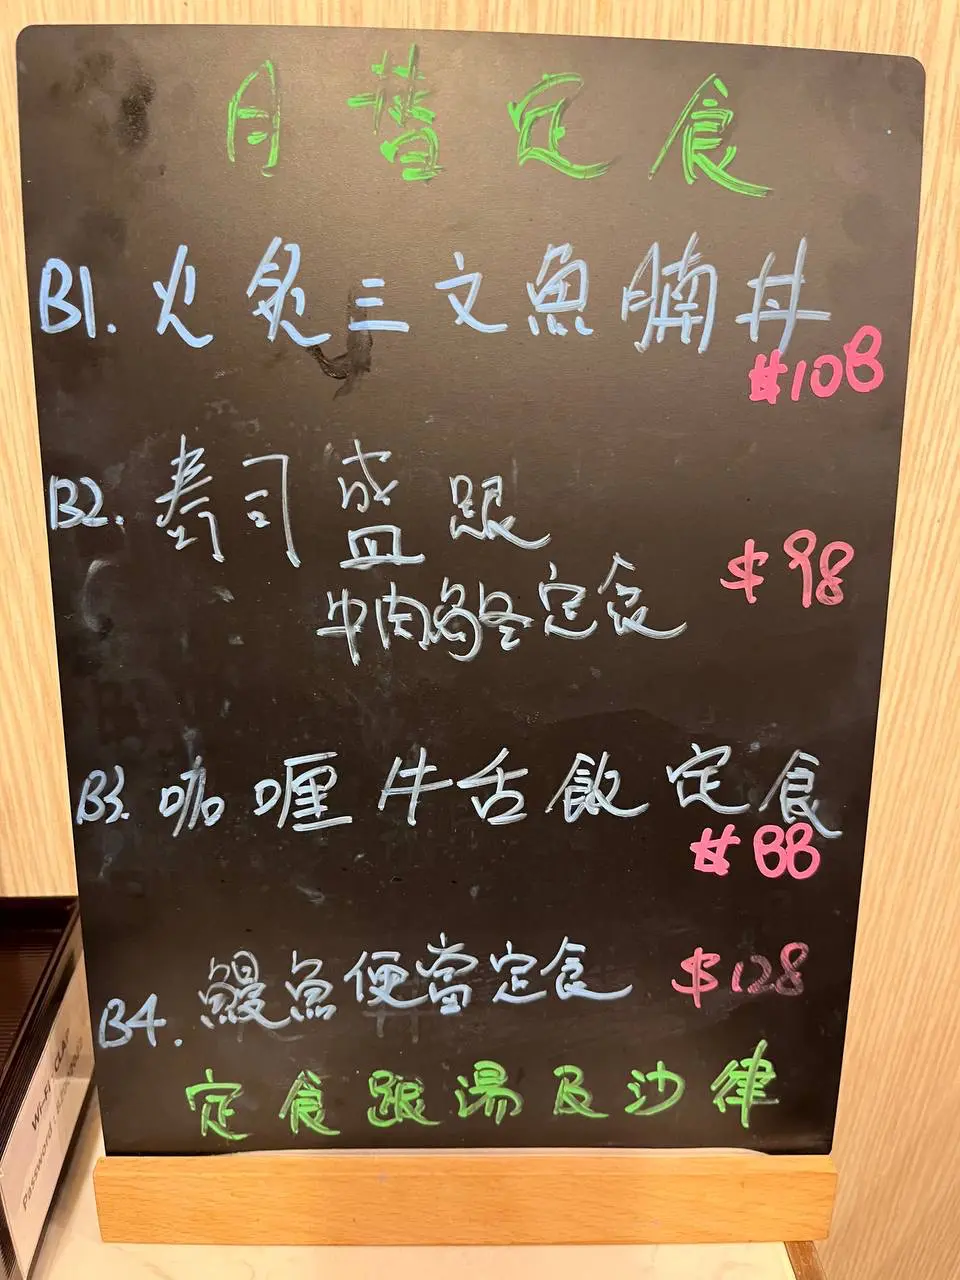 月替定食
B1. 火炙三文魚腩丼
$108
B2. 寿司盛跟
牛肉烏冬定食
$98
B3. 咖喱牛舌飯定食
$88
B4. 鰻魚便當定食 $128
定食跟湯及沙律
Wi-Fi: CLAP